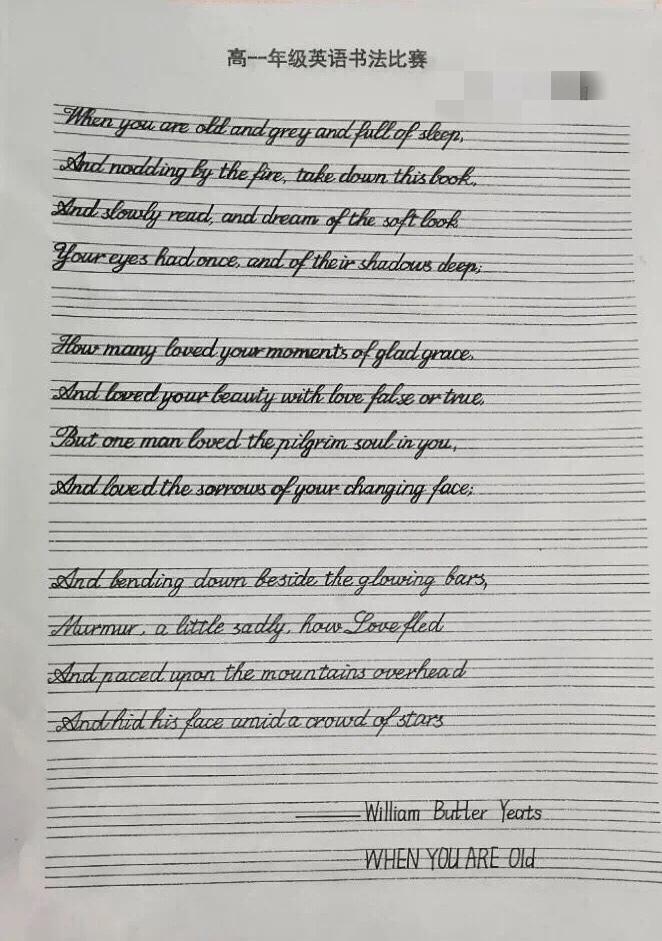 高一年级英语书法比赛
When you are old and grey and full of sleep,
And nodding by the fire, take down this book,
And slowly read, and dream of the soft look
Your eyes had once, and of their shadows deep;
How many loved your moments of glad grace,
And loved your beauty with love false or true,
But one man loved the pilgrim soul in you,
And loved the sorrows of your changing face;
And bending down beside the glowing bars,
Murmur, a little sadly, how Love fled
And paced upon the mountains overhead
And hid his face amid a crowd of stars
——William Butler Yeats
WHEN YOU ARE Old